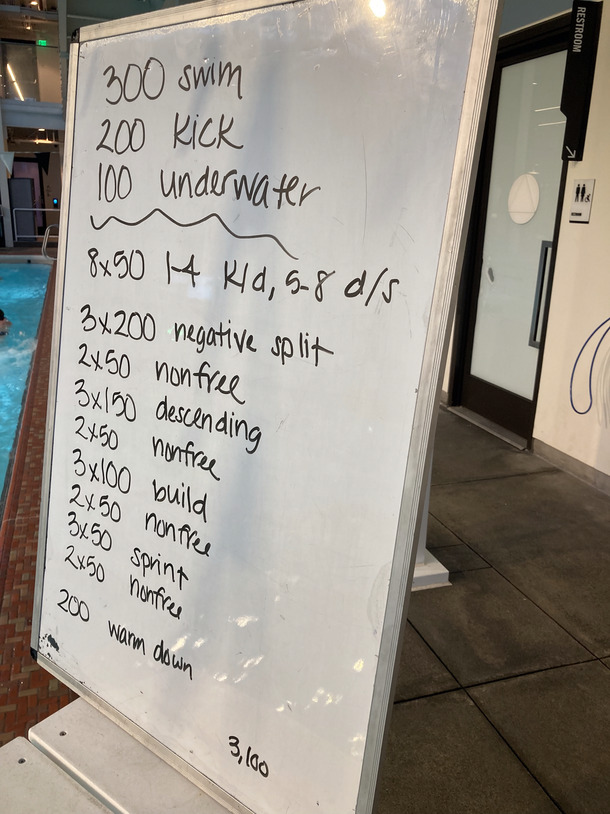 300 swim
200 kick
100 underwater
8x50 1-4 K/d, 5-8 d/s
3x200 negative split
2x50 nonfree
3x150 descending
2x50 nonfree
3x100 build
2x50 nonfree
3x50 sprint
2x50 nonfree
200 warm down
3,100
RESTROOM